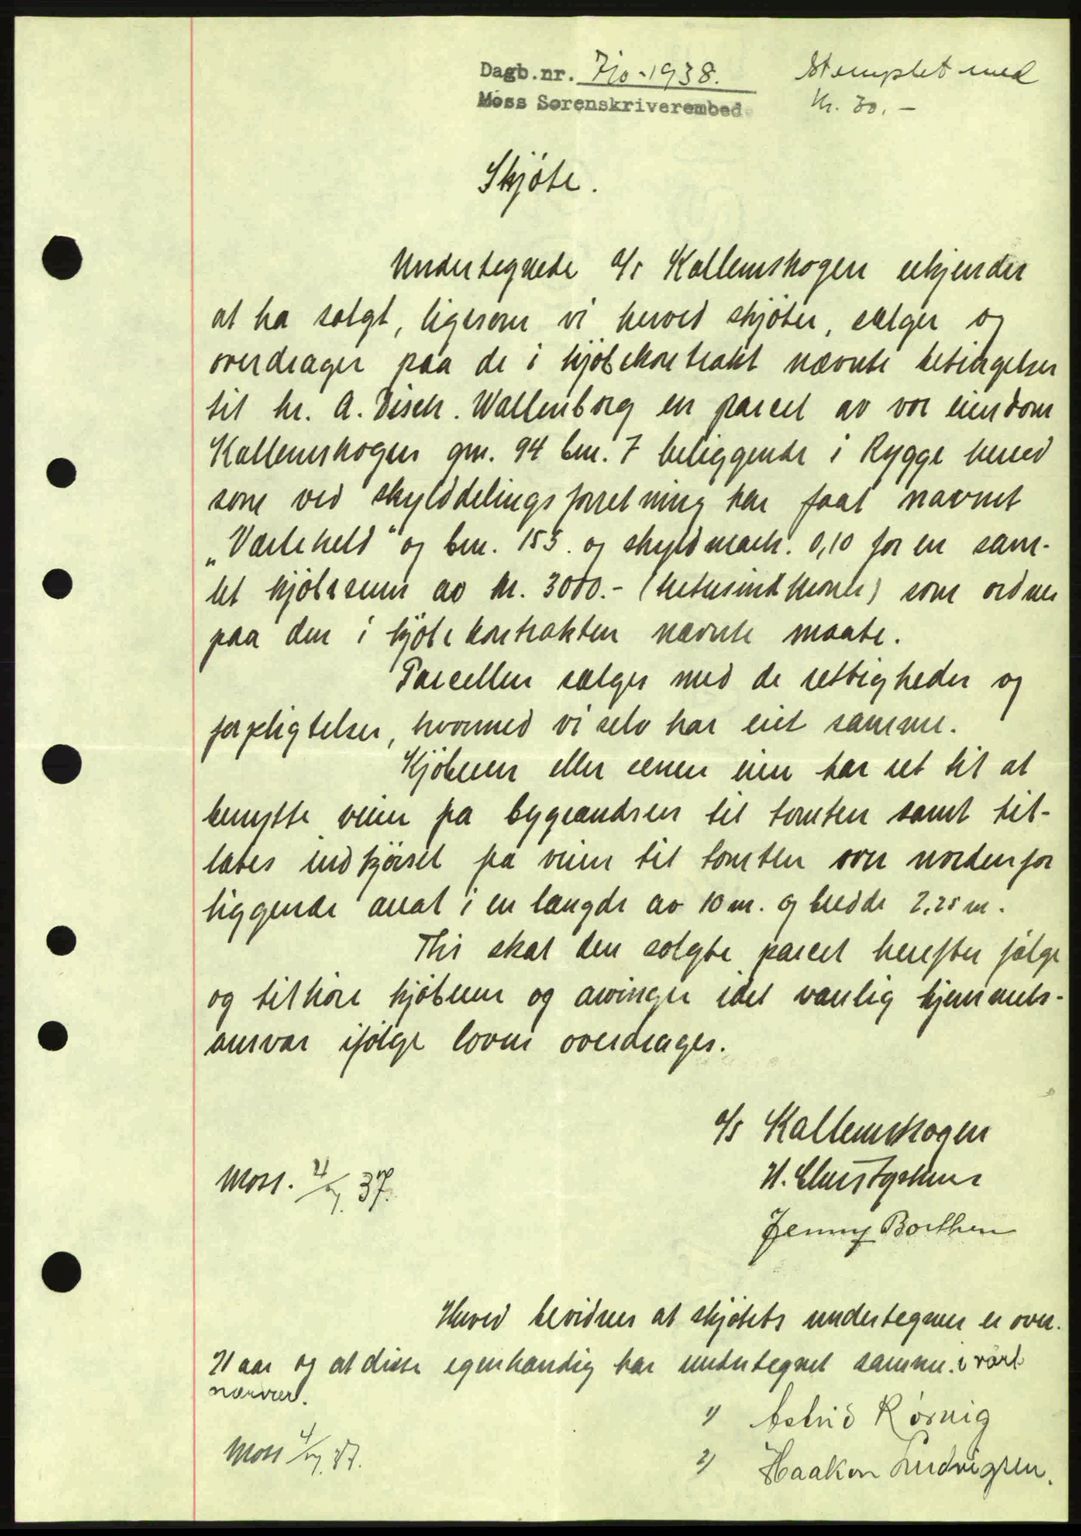 Dagb.nr. 710-1938.
Moss Sorenskriverembede
Stemplet med
kr. 30.-
Skjøte.
Undertegnede A/s Kallemskogen erkjender
at ha solgt, ligesom vi herved skjøter, sælger og
overdrager paa de i kjøbekontrakt nævnte betingelser
til hr. A. Disch. Wallenborg en parcel av vor eiendom
Kallemskogen gnr. 94 bnr. 7 beliggende i Rygge herred
som ved skylddelingsforretning har faat navnet
„Varteheld" og bnr. 155. og skyldmark. 0,10 for en sam-
let kjøbesum av kr. 3000.- (tretusindkroner) som ordnes
paa den i kjøbekontrakten nævnte maate.
Parcellen sælges med de rettigheder og
forpligtelser, hvormed vi selv har eiet samme.
Kjøberen eller senere eier har ret til at
benytte veien på bygrandsen til tomten samt til-
lates indkjørsel på veien til tomten over nordenfor
liggende areal i en længde av 10 m. og bredde 2,25 m.
Thi skal den solgte parcel herefter følge
og tilhøre kjøberen og arvinger idet vanlig hjemmels-
ansvar ifølge loven overdrages.
A/s Kallemskogen
Moss. 4/ 37.
H.
Jenny Borthen
Herved bevidnes at skjøtets undertegner er over.
21 aar og at disse egenhændig har undertegnet samme. i vårt
nærvær.
1) Astrid Rørvig
Moss 4/ 37.
2) Haakon Ludvigsen.